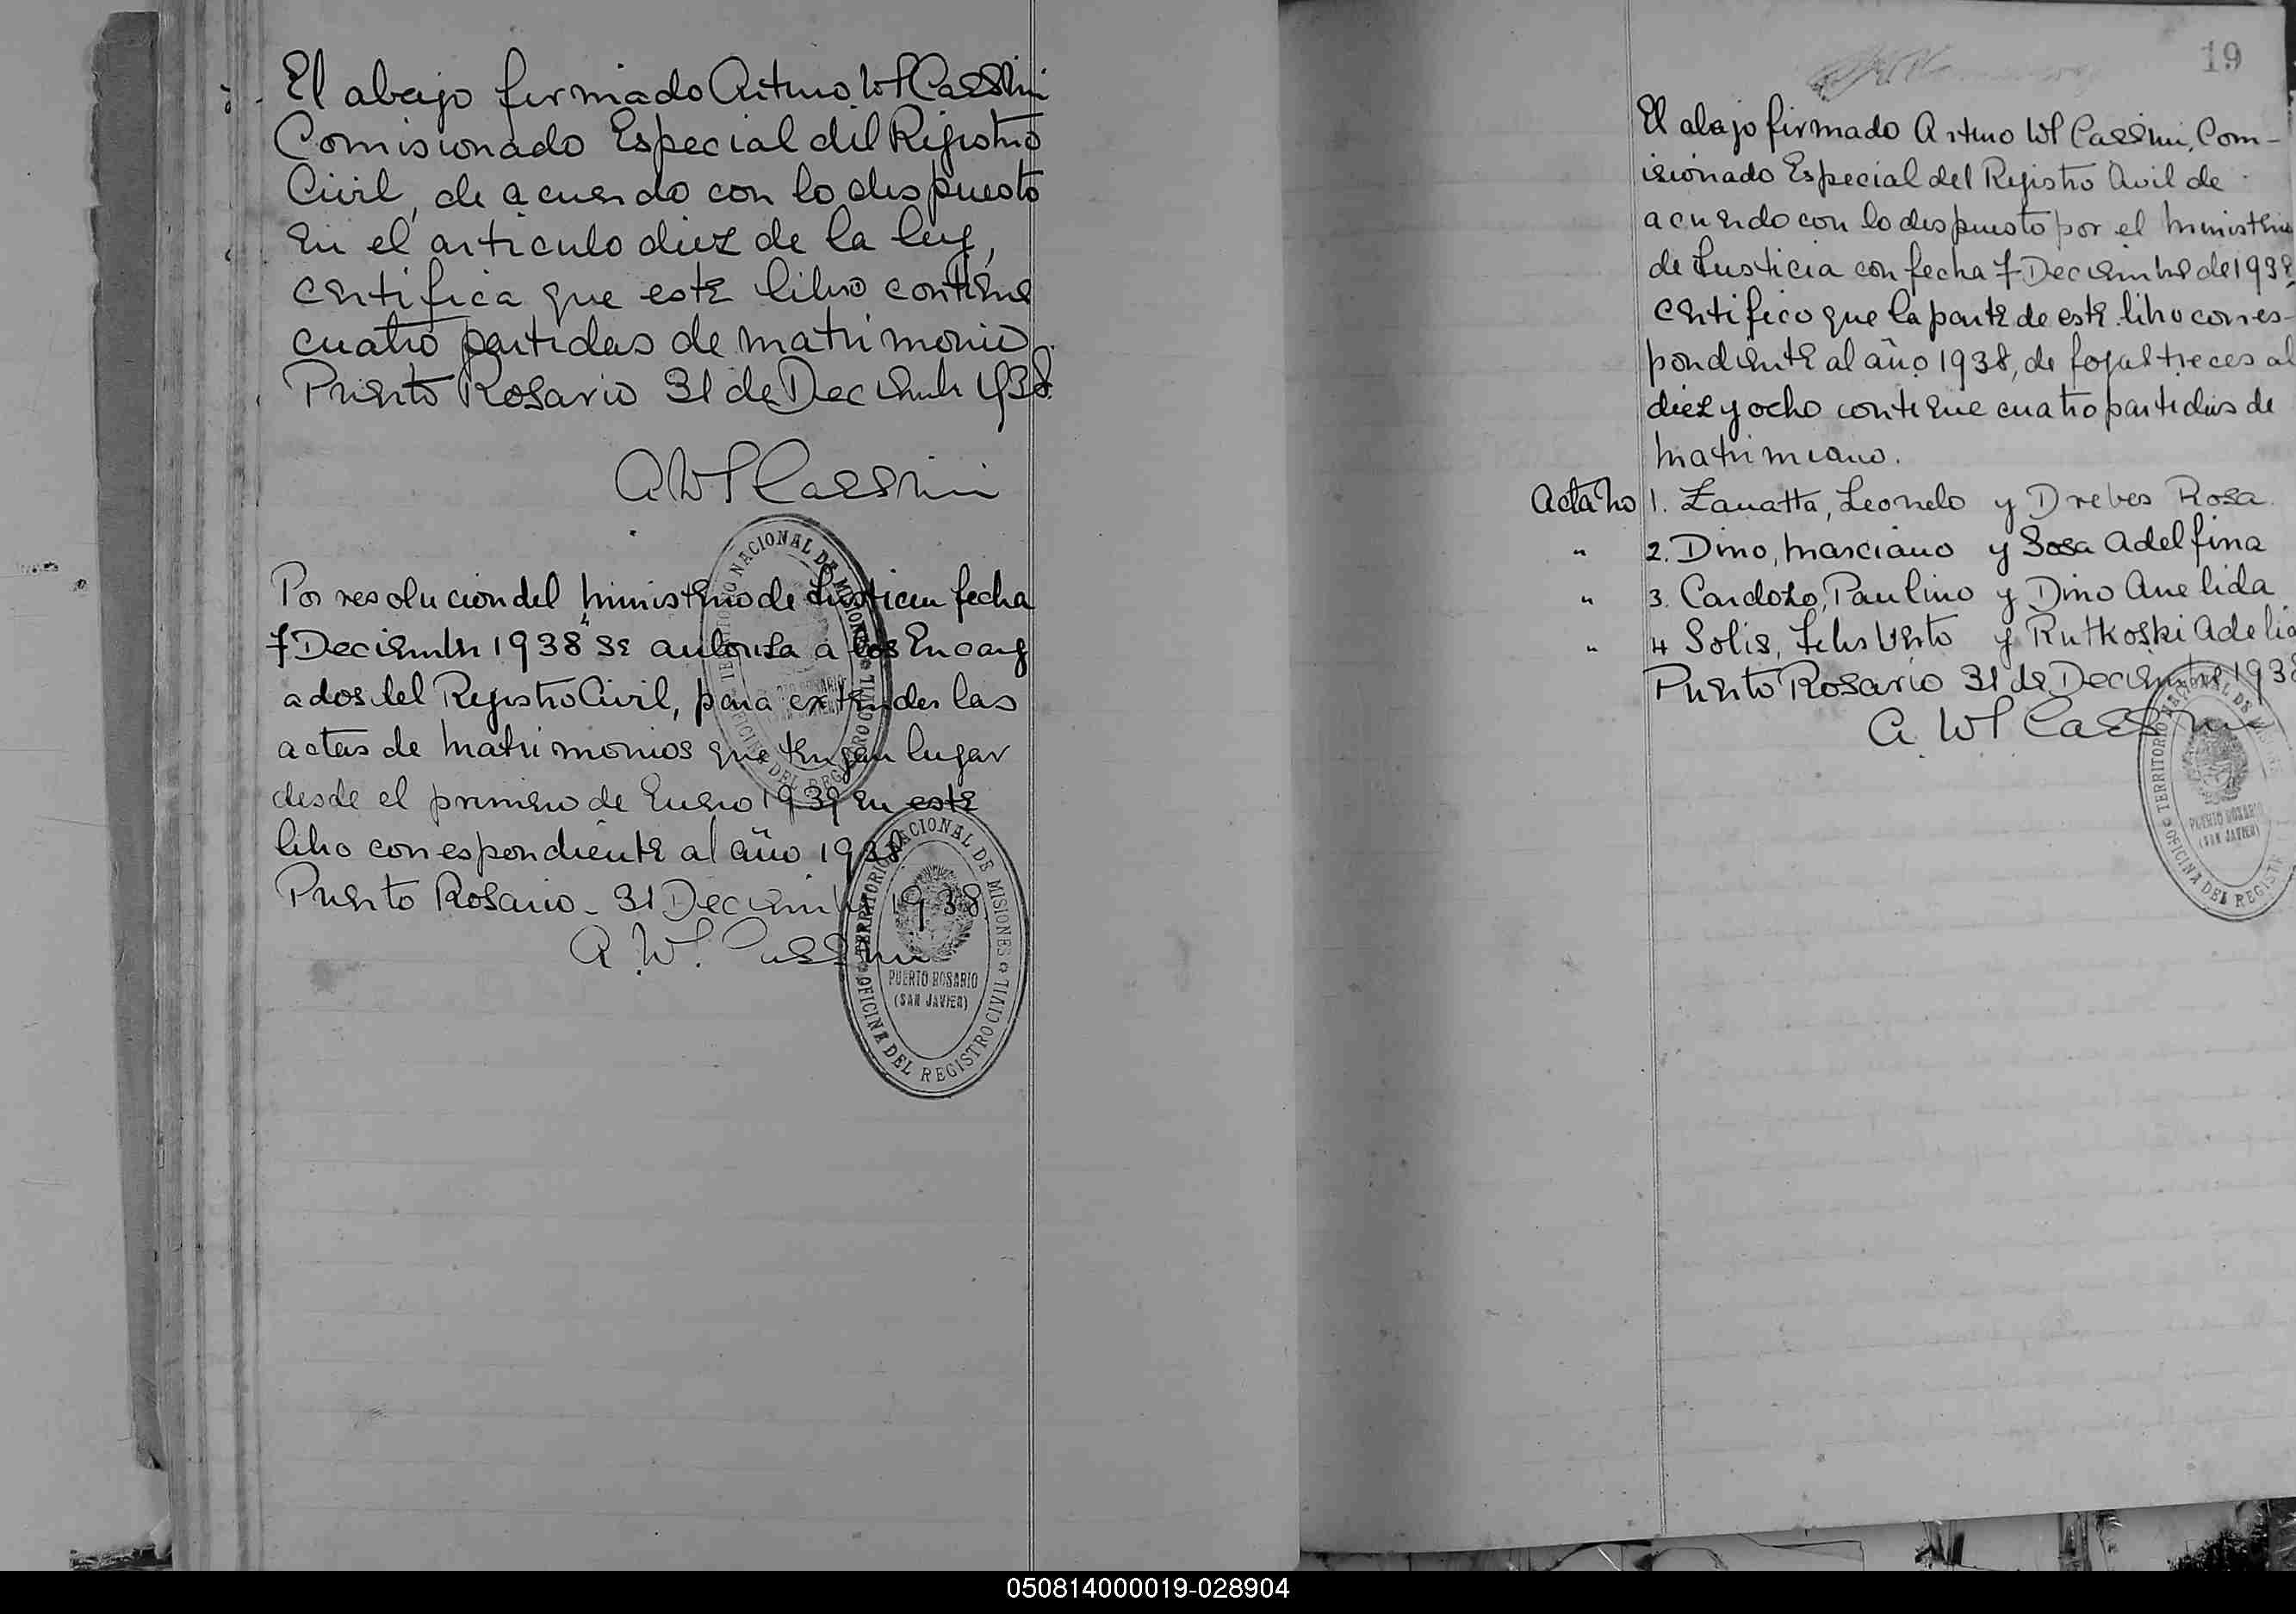 El abajo firmado Arturo W Cassini
Comisionado Especial del Rejistro
Civil, de acuerdo con lo dispuesto
En el articulo diez de la ley,
certifica que este libro contiene
cuatro partidas de matrimonio
Puerto Rosario 31 de Deciembr 1938.
A W Cassini
Por resolucion del Ministerio de Justicia fecha
7 Deciembre 1938 se autoriza a los Encarg
ados del Rejistro Civil, para extender las
actas de matrimonios que tengan lugar
desde el primero de Enero 1939 en este
libro correspondiente al año 1938
Puerto Rosario - 31 Deciembre 1938
A. W. Cassini
TERRITORIO NACIONAL DE MISIONES
PUERTO ROSARIO
(SAN JAVIER)
OFICINA DEL REGISTRO CIVIL
19
El abajo firmado Arturo W Cassini, Com-
isionado Especial del Rejistro Civil de
acuerdo con lo dispuesto por el Ministerio
de Justicia con fecha 7 Deciembre de 1938,
certifico que la parte de este libro corres-
pondiente al año 1938, de fojas treces al
diez y ocho contiene cuatro partidas de
matrimiano.
Acta No 1. Zanatta, Leonelo y Drebes Rosa
" 2. Dino, Marciano y Sosa Adelfina
" 3. Cardozo, Paulino y Dino Anelida
" 4 Solis, y Rutkoski Adelia
Puerto Rosario 31 de Deciembre 1938
A. W Cassini
TERRITORIO NACIONAL DE MISIONES
PUERTO ROSARIO
(SAN JAVIER)
OFICINA DEL REGISTR
050814000019-028904